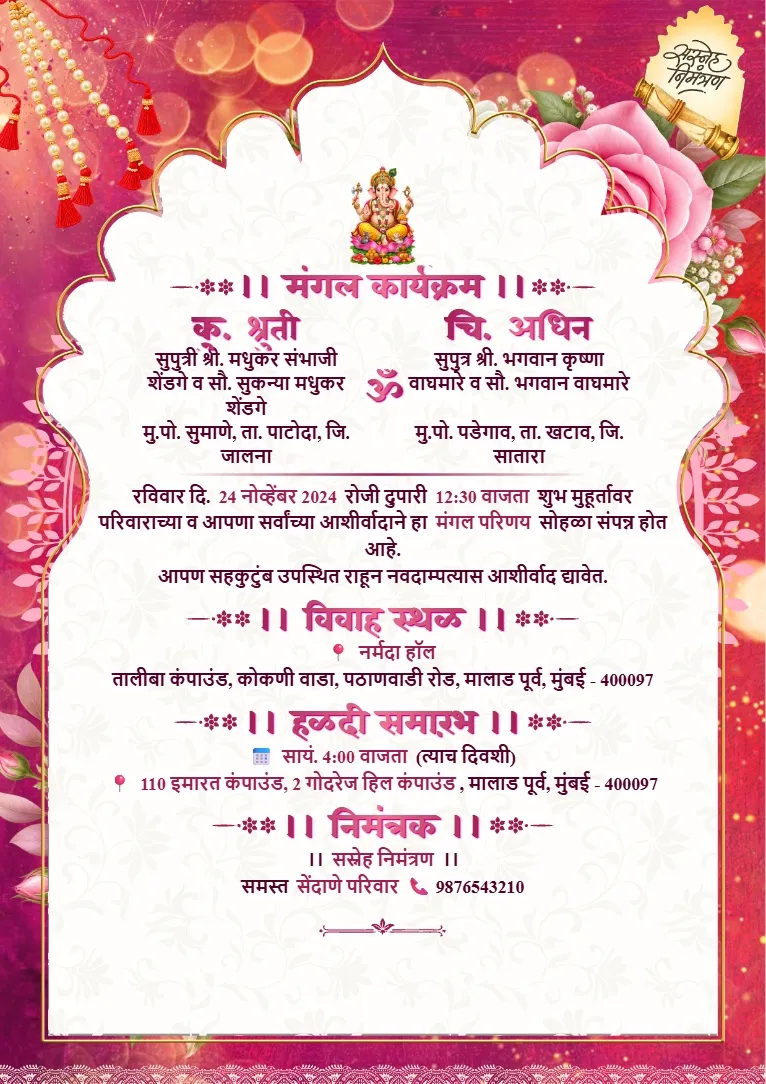 सस्नेह
निमंत्रण
।। मंगल कार्यक्रम ।।
कु. श्रुती
सुपुत्री श्री. मधुकर संभाजी
शेंडगे व सौ. सुकन्या मधुकर
शेंडगे
मु.पो. सुमाणे, ता. पाटोदा, जि.
जालना
ॐ
चि. अधिन
सुपुत्र श्री. भगवान कृष्णा
वाघमारे व सौ. भगवान वाघमारे
मु.पो. पडेगाव, ता. खटाव, जि.
सातारा
रविवार दि. 24 नोव्हेंबर 2024 रोजी दुपारी 12:30 वाजता शुभ मुहूर्तावर
परिवाराच्या व आपणा सर्वांच्या आशीर्वादाने हा मंगल परिणय सोहळा संपन्न होत
आहे.
आपण सहकुटुंब उपस्थित राहून नवदाम्पत्यास आशीर्वाद द्यावेत.
।। विवाह स्थळ ।।
📍 नर्मदा हॉल
तालीबा कंपाउंड, कोकणी वाडा, पठाणवाडी रोड, मालाड पूर्व, मुंबई - 400097
।। हळदी समारंभ ।।
📅 सायं. 4:00 वाजता (त्याच दिवशी)
📍 110 इमारत कंपाउंड, 2 गोदरेज हिल कंपाउंड , मालाड पूर्व, मुंबई - 400097
।। निमंत्रक ।।
।। सस्नेह निमंत्रण ।।
समस्त सेंदाणे परिवार 📞 9876543210